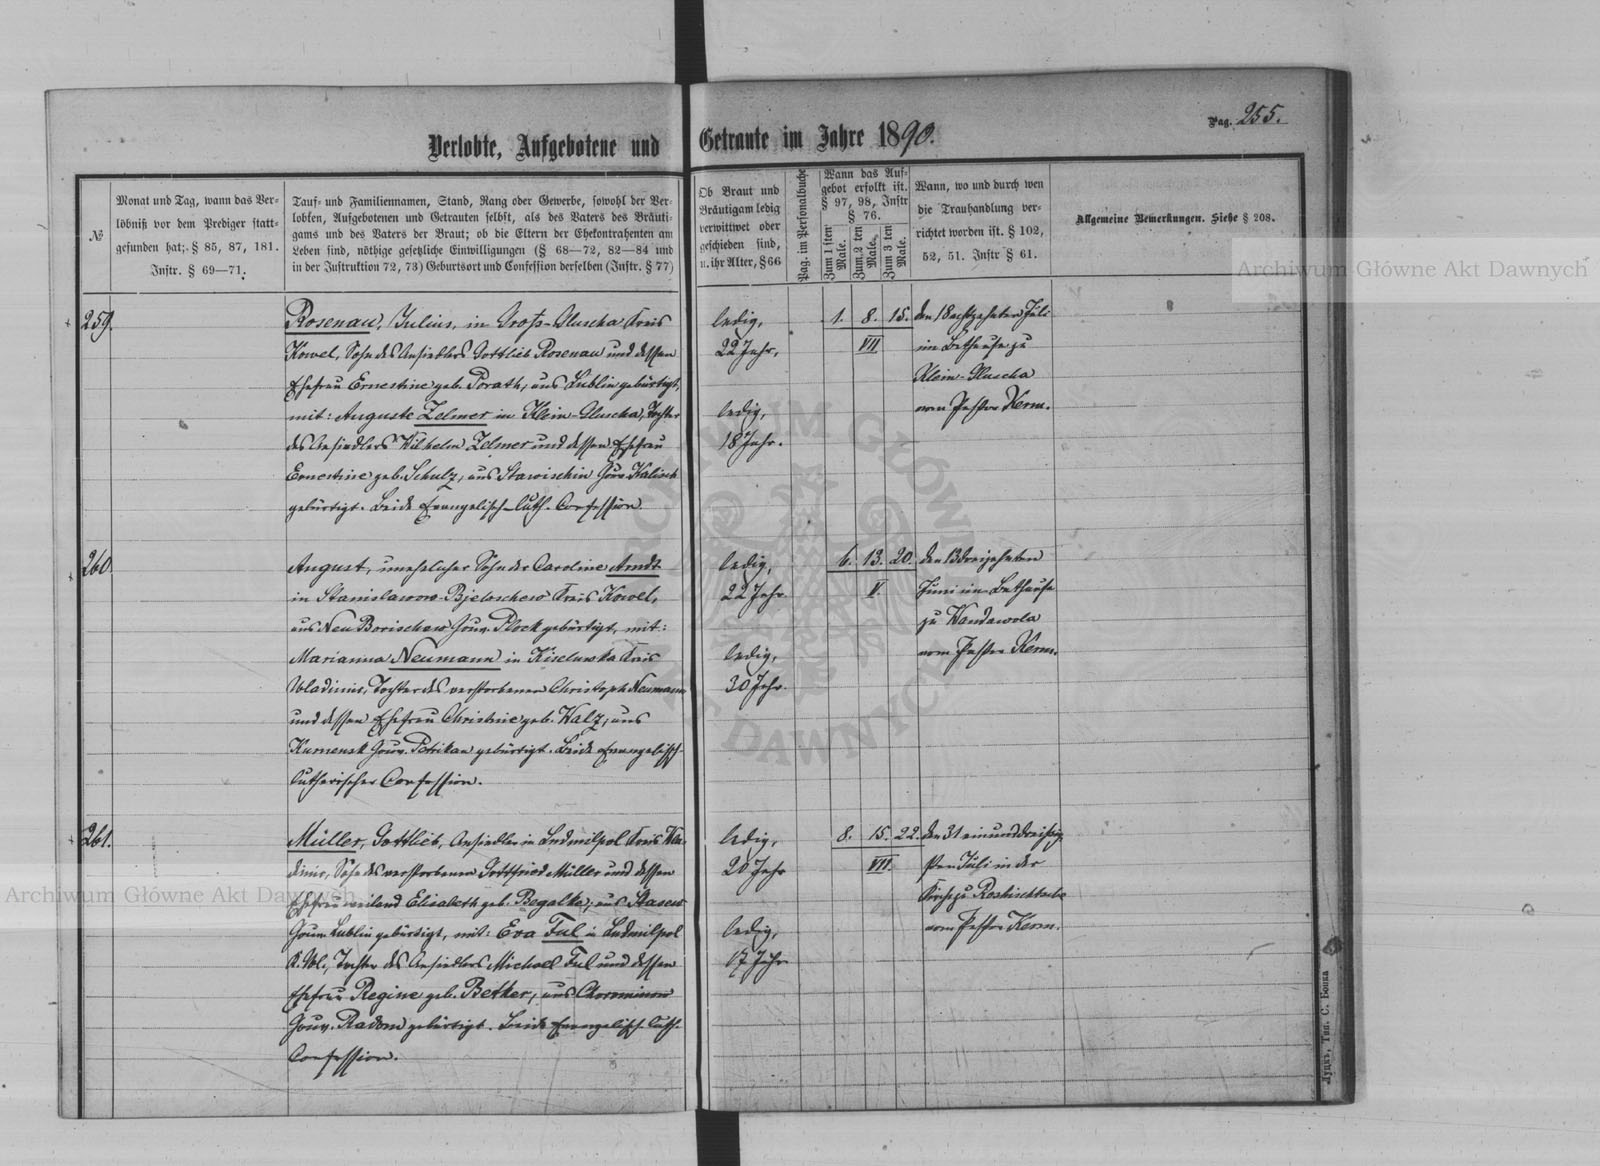 Pag. 255.
Verlobte, Aufgebotene und Getraute im Jahre 1890.
№
Monat und Tag, wann das Ver-
löbniß vor dem Prediger statt-
gefunden hat; § 85, 87, 181.
Instr. § 69—71.
Tauf- und Familiennamen, Stand, Rang oder Gewerbe, sowohl der Ver-
lobten, Aufgebotenen und Getrauten selbst, als des Vaters des Bräuti-
gams und des Vaters der Braut; ob die Eltern der Ehekontrahenten am
Leben sind, nöthige gesetzliche Einwilligungen (§ 68—72, 82—84 und
in der Instruktion 72, 73) Geburtsort und Confession derselben (Instr. § 77)
Ob Braut und
Bräutigam ledig
verwittwet oder
geschieden sind,
u. ihr Alter, § 66
Pag. im Personalbuche
Wann das Auf-
gebot erfolkt ist.
§ 97, 98, Instr
§ 76.
Zum 1 sten
Male.
Zum 2 ten
Male.
Zum 3 ten
Male.
Wann, wo und durch wen
die Trauhandlung ver-
richtet worden ist. § 102,
52, 51. Instr § 61.
Allgemeine Bemerkungen. Siehe § 208.
259.
Rosenau, Julius, in Groß-Gluscha Kreis
Kowel, Sohn des Ansiedlers Gottlieb Rosenau und dessen
Ehefrau Ernestine geb. Porath, aus Lublin gebürtigt,
mit: Auguste Zelmer in Klein-Gluscha, Tochter
des Ansiedlers Wilhelm Zelmer und dessen Ehefrau
Ernestine geb. Schulz, aus Stawischin Gouv. Kalisch
gebürtigt. Beide Evangelisch-luth. Confession.
ledig,
22 Jahr,
ledig,
18 Jahr.
1. 8. 15.
VII
den 18 achtzehnten Juli
im Bethause zu
Klein-Gluscha
vom Pastor Kerm.
260
August, unehelicher Sohn der Caroline Arndt
in Stanislawow-Bjelaschew Kreis Kowel,
aus Neu Borischew Gouv. Plock gebürtigt, mit:
Marianna Neumann in Kiselewka Kreis
Wladimir, Tochter des verstorbenen Christoph Neumann
und dessen Ehefrau Christine geb. Walz, aus
Kamensk Gouv. Petrikau gebürtigt. Beide Evangelisch-
lutherischer Confession.
ledig,
22 Jahr.
ledig,
30 Jahr.
6. 13. 20.
V.
den 13 dreizehnten
Juni im Bethause
zu Wandawola
vom Pastor Kerm.
261.
Müller, Gottlieb, Ansiedler in Ludmilpol Kreis Wla-
dimir, Sohn des verstorbenen Gottfried Müller und dessen
Ehefrau weiland Elisabeth geb. Begalke, aus Stasew
Gouv. Lublin gebürtigt, mit: Eva Ful in Ludmilpol
K. Wl., Tochter des Ansiedlers Michael Ful und dessen
Ehefrau Regine geb. Betker, aus
Gouv. Radom gebürtigt. Beide Evangelisch-luth.
Confession.
ledig,
20 Jahr
ledig,
17 Jahr
8. 15. 22.
VII.
den 31 einunddreißig-
sten Juli in der
Kirche zu Roshischtsche
vom Pastor Kerm.
Луцкъ, Тип. С. Бокка
Archiwum Główne Akt Dawnych
Archiwum Główne Akt Dawnych
ARCHIWUM GŁÓWNE AKT DAWNYCH